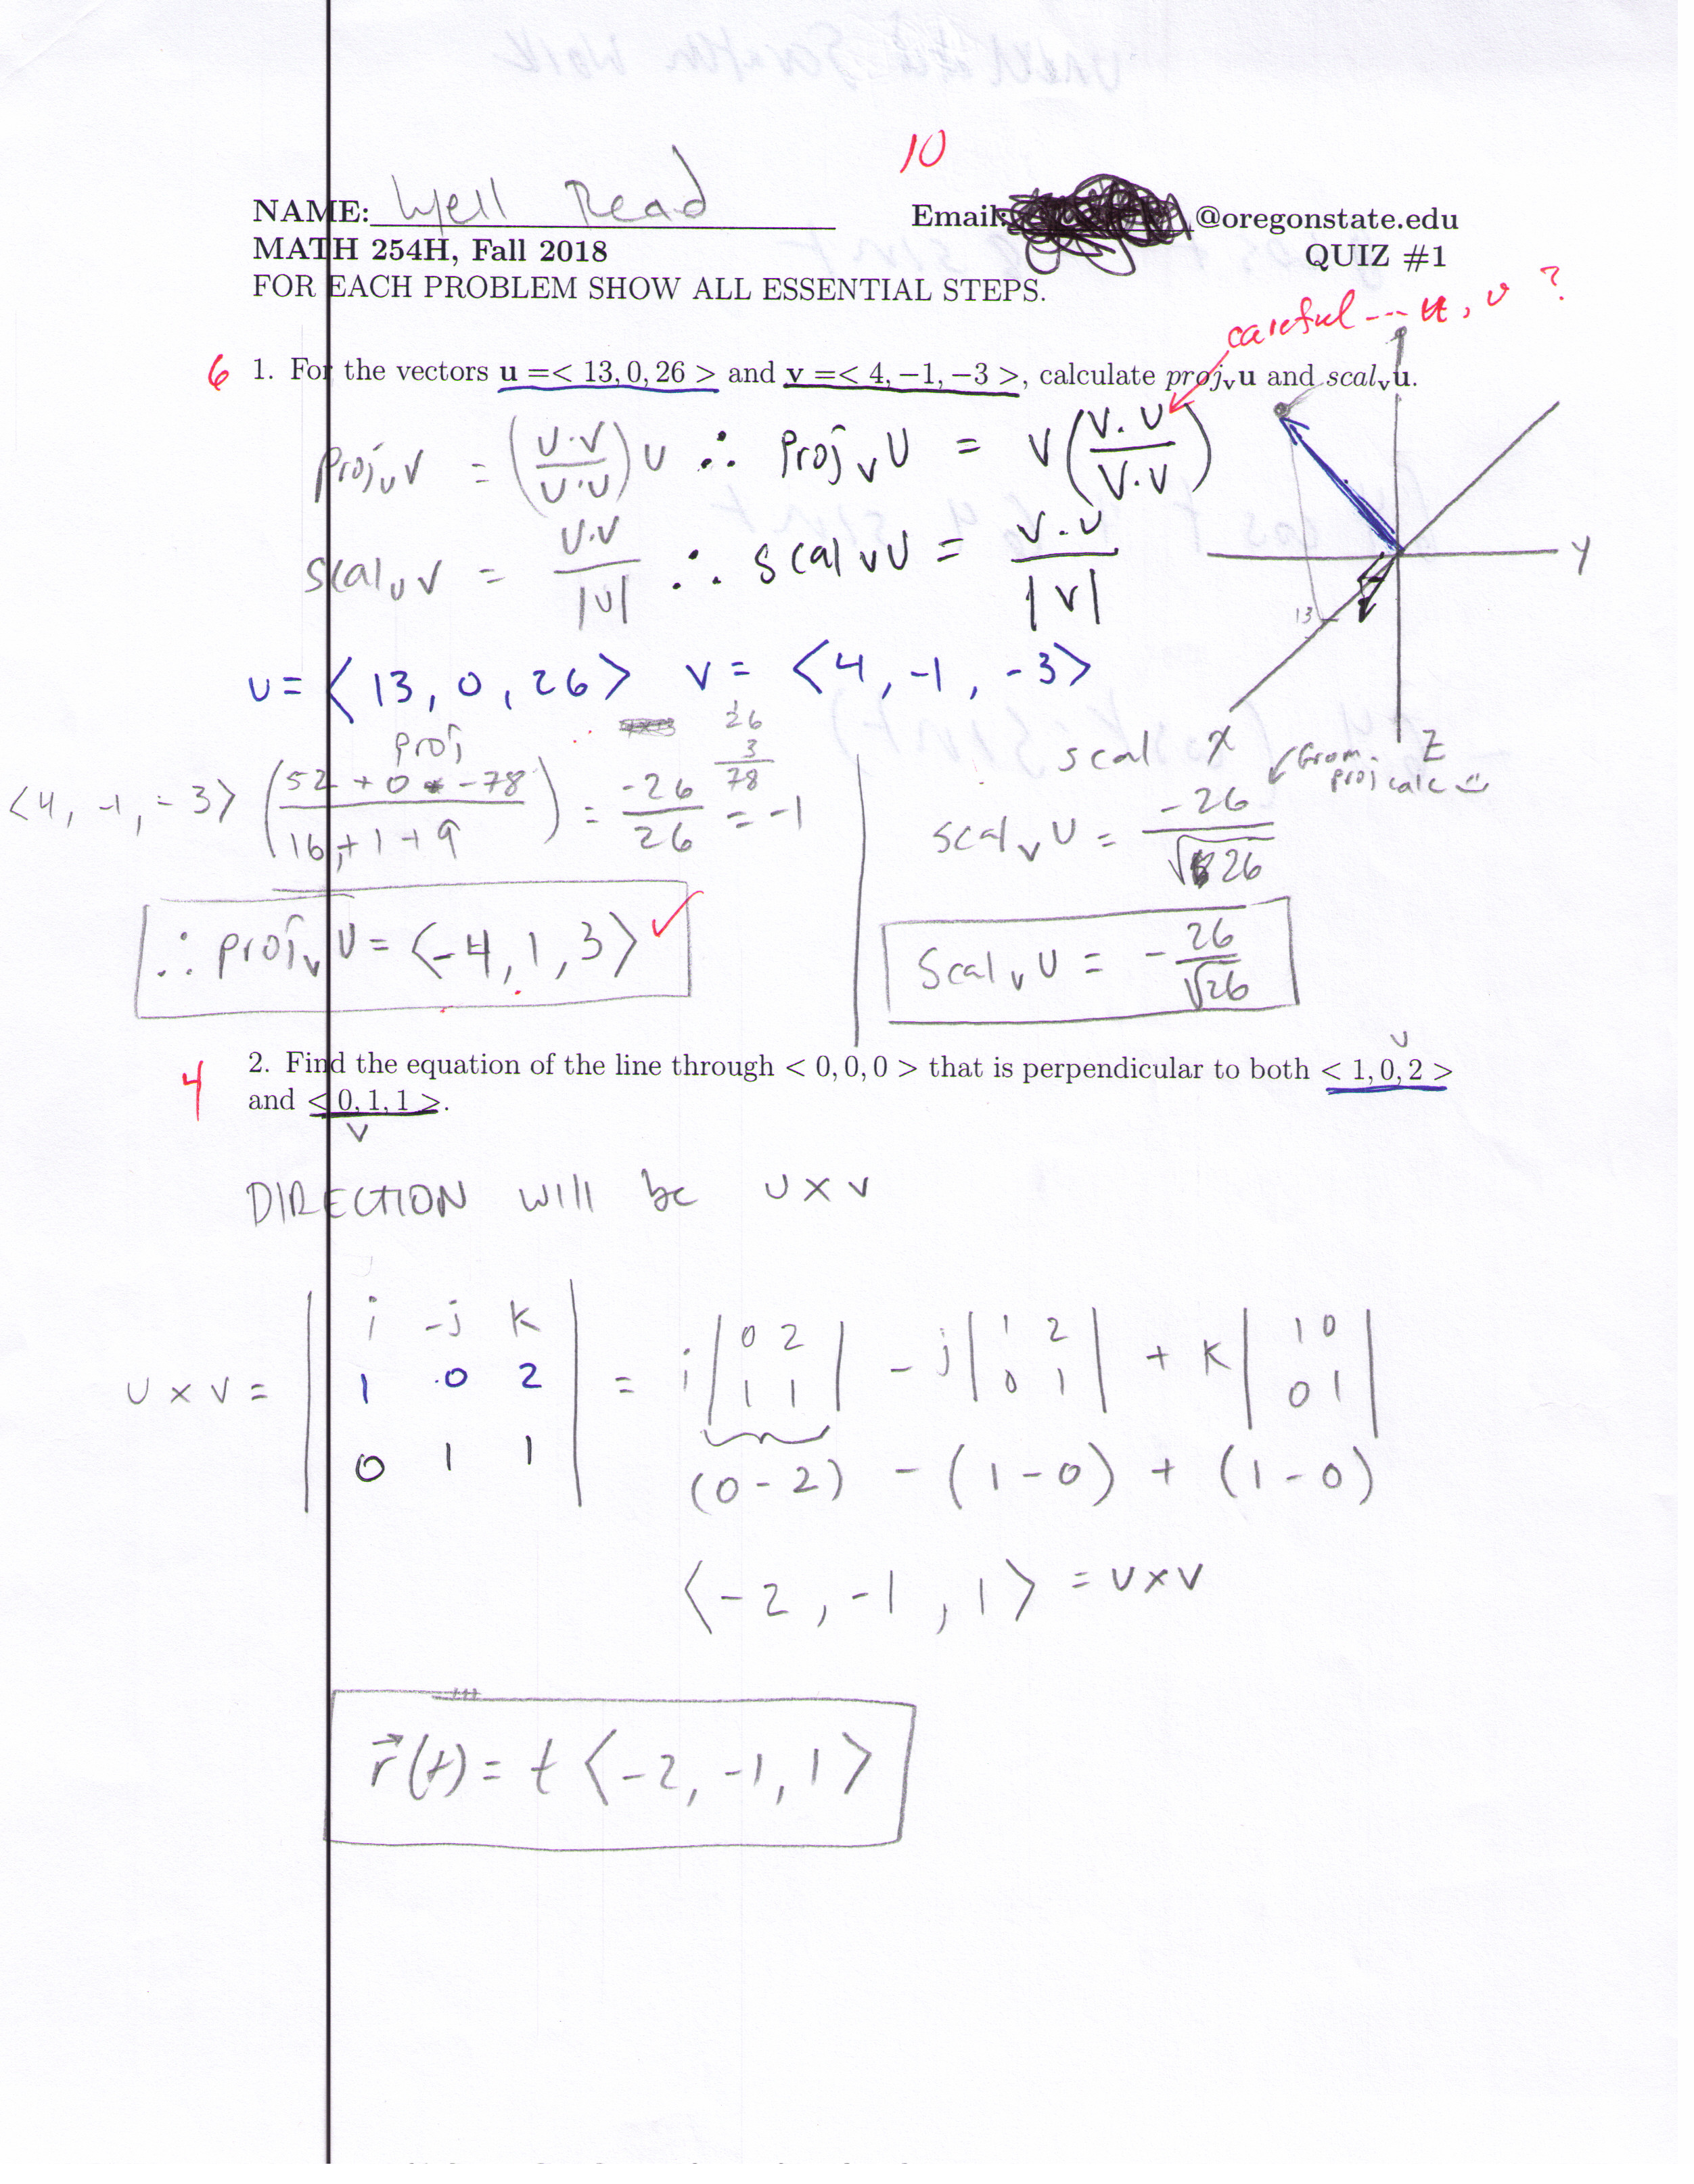 10
NAME: Well Read Email: @oregonstate.edu
MATH 254H, Fall 2018 QUIZ #1
FOR EACH PROBLEM SHOW ALL ESSENTIAL STEPS.
careful --- u, v ?
6 1. For the vectors u =< 13, 0, 26 > and v =< 4, −1, −3 >, calculate proj_v u and scal_v u.
proj_u v = (u·v / u·u) u ∴ proj_v u = v (v·u / v·v)
scal_u v = u·v / |u| ∴ scal_v u = v·u / |v|
Y
13
X
Z
u = ⟨13, 0, 26⟩ v = ⟨4, -1, -3⟩
proj
26
3
78
⟨4, -1, -3⟩ (52 + 0 + -78 / 16 + 1 + 9) = -26/26 = -1
∴ proj_v u = ⟨-4, 1, 3⟩ ✓
scal
from proj calc ☺
scal_v u = -26 / √26
Scal_v u = - 26/√26
4 2. Find the equation of the line through < 0, 0, 0 > that is perpendicular to both < 1, 0, 2 >
and < 0, 1, 1 >.
v
DIRECTION will be u × v
u × v = | i -j k | = i | 0 2 | - j | 1 2 | + k | 1 0 |
| 1 0 2 | | 1 1 | | 0 1 | | 0 1 |
| 0 1 1 | (0 - 2) - (1 - 0) + (1 - 0)
⟨-2, -1, 1⟩ = u × v
r⃗(t) = t ⟨-2, -1, 1⟩